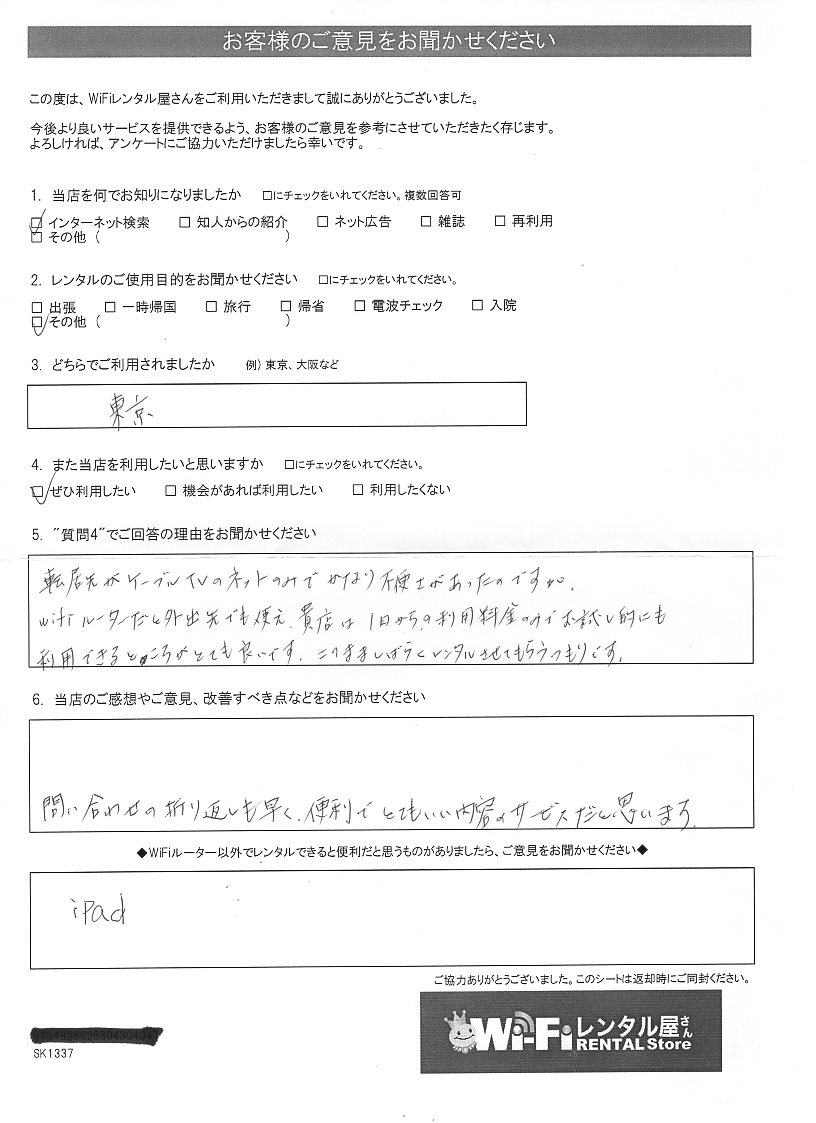 お客様のご意見をお聞かせください
この度は、WiFiレンタル屋さんをご利用いただきまして誠にありがとうございました。
今後より良いサービスを提供できるよう、お客様のご意見を参考にさせていただきたく存じます。
よろしければ、アンケートにご協力いただけましたら幸いです。
1. 当店を何でお知りになりましたか □にチェックをいれてください。複数回答可
□ インターネット検索 □ 知人からの紹介 □ ネット広告 □ 雑誌 □ 再利用
□ その他 ( )
2. レンタルのご使用目的をお聞かせください □にチェックをいれてください。
□ 出張 □ 一時帰国 □ 旅行 □ 帰省 □ 電波チェック □ 入院
□ その他 ( )
3. どちらでご利用されましたか 例) 東京、大阪など
東京
4. また当店を利用したいと思いますか □にチェックをいれてください。
□ ぜひ利用したい □ 機会があれば利用したい □ 利用したくない
5. "質問4"でご回答の理由をお聞かせください
転居先がケーブルTVのネットのみでかなり不便さがあったのですが、
wifiルーターだと外出先でも使え、貴店は1日からの利用料金のみでお試し的にも
利用できるところがとても良いです。このまましばらくレンタルさせてもらうつもりです。
6. 当店のご感想やご意見、改善すべき点などをお聞かせください
問い合わせの折り返しも早く、便利でとてもいい内容のサービスだと思います。
◆WiFiルーター以外でレンタルできると便利だと思うものがありましたら、ご意見をお聞かせください◆
iPad
ご協力ありがとうございました。このシートは返却時にご同封ください。
Wi-Fiレンタル屋さん
RENTAL Store
SK1337